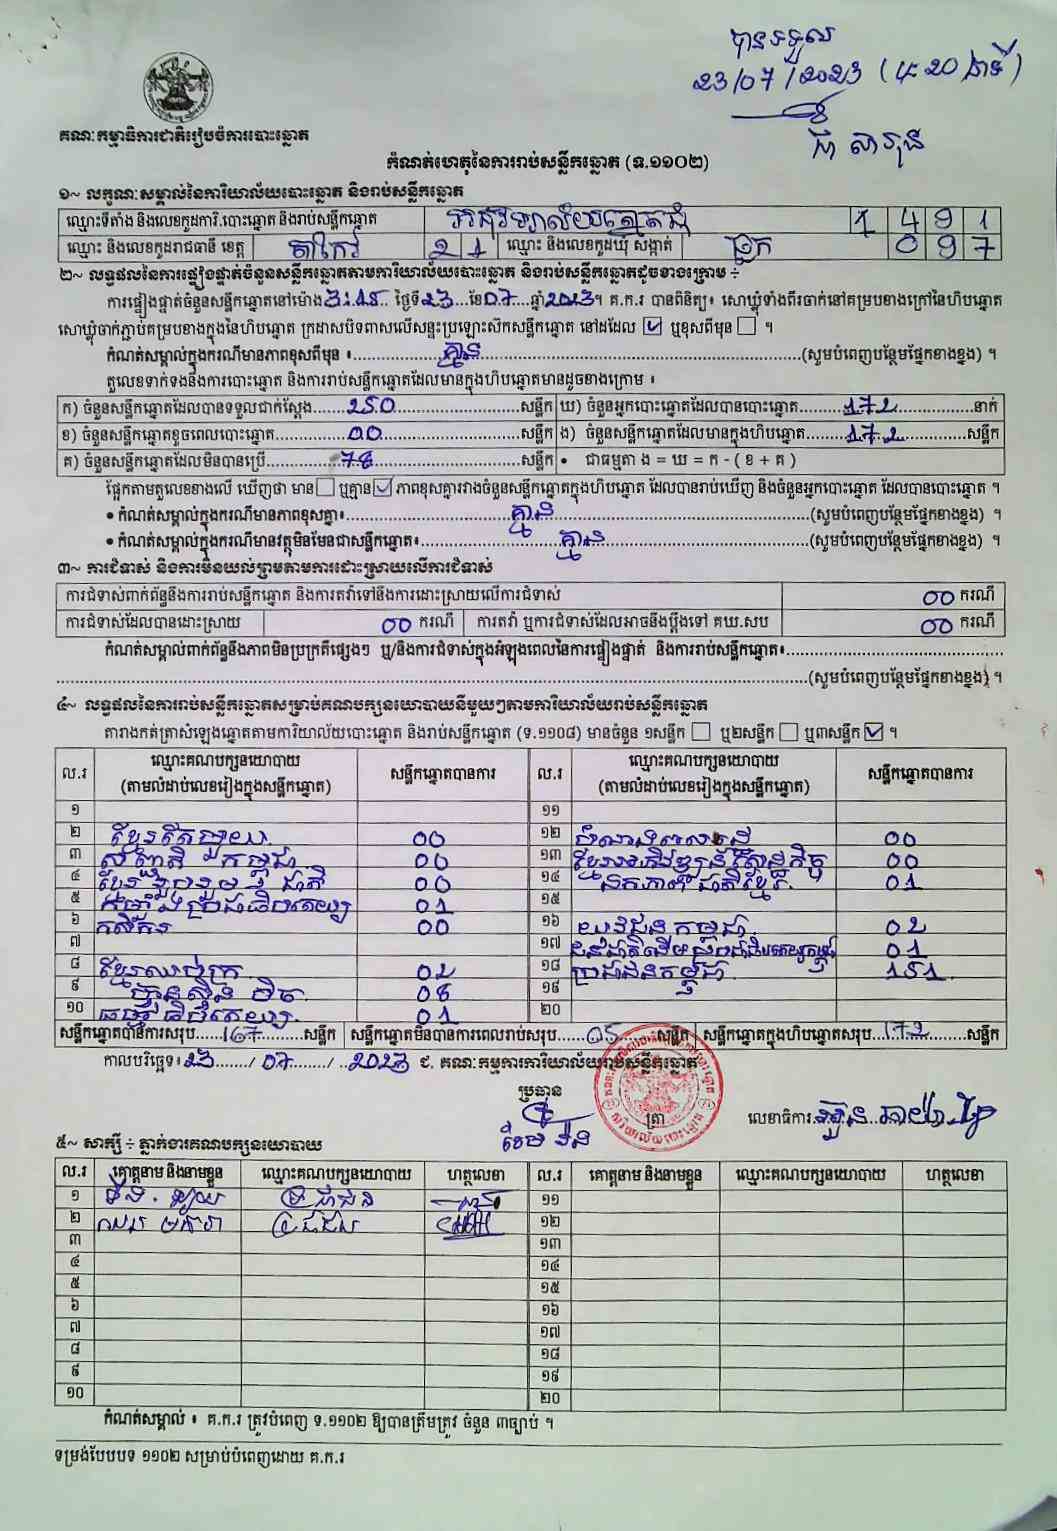 បានទទួល
23/07/2023 ( 4:20 នាទី )
គណៈកម្មាធិការជាតិរៀបចំការបោះឆ្នោត
កំណត់ហេតុនៃការរាប់សន្លឹកឆ្នោត (ទ.១១០២)
១~ លក្ខណៈសម្គាល់នៃការិយាល័យបោះឆ្នោត និងរាប់សន្លឹកឆ្នោត
ឈ្មោះទីតាំង និងលេខកូដការិ.បោះឆ្នោត និងរាប់សន្លឹកឆ្នោត 1 4 9 1
ឈ្មោះ និងលេខកូដរាជធានី ខេត្ត តាកែវ 2 1 ឈ្មោះ និងលេខកូដឃុំ សង្កាត់ 0 9 7
២~ លទ្ធផលនៃការផ្ទៀងផ្ទាត់ចំនួនសន្លឹកឆ្នោតតាមការិយាល័យបោះឆ្នោត និងរាប់សន្លឹកឆ្នោតដូចខាងក្រោម ÷
ការផ្ទៀងផ្ទាត់ចំនួនសន្លឹកឆ្នោតនៅម៉ោង 3:45 ថ្ងៃទី 23 ខែ 07 ឆ្នាំ 2023។ គ.ក.រ បានពិនិត្យ៖ សោឃ្លុំទាំងពីរចាក់នៅគម្របខាងក្រៅនៃហិបឆ្នោត
សោឃ្លុំចាក់ភ្ជាប់គម្របខាងក្នុងនៃហិបឆ្នោត ក្រដាសបិទពាសលើសន្ទះប្រឡោះស៊កសន្លឹកឆ្នោត នៅដដែល ☑ ឬខុសពីមុន ☐ ។
កំណត់សម្គាល់ក្នុងករណីមានភាពខុសពីមុន ៖ គ្មាន (សូមបំពេញបន្ថែមផ្នែកខាងខ្នង) ។
តួលេខទាក់ទងនឹងការបោះឆ្នោត និងការរាប់សន្លឹកឆ្នោតដែលមានក្នុងហិបឆ្នោតមានដូចខាងក្រោម ៖
ក) ចំនួនសន្លឹកឆ្នោតដែលបានទទួលជាក់ស្តែង 250 សន្លឹក ឃ) ចំនួនអ្នកបោះឆ្នោតដែលបានបោះឆ្នោត 172 នាក់
ខ) ចំនួនសន្លឹកឆ្នោតខូចពេលបោះឆ្នោត 00 សន្លឹក ង) ចំនួនសន្លឹកឆ្នោតដែលមានក្នុងហិបឆ្នោត 172 សន្លឹក
គ) ចំនួនសន្លឹកឆ្នោតដែលមិនបានប្រើ 78 សន្លឹក • ជាធម្មតា ង = ឃ = ក - ( ខ + គ )
ផ្អែកតាមតួលេខខាងលើ ឃើញថា មាន ☐ ឬគ្មាន ☑ ភាពខុសគ្នារវាងចំនួនសន្លឹកឆ្នោតក្នុងហិបឆ្នោត ដែលបានរាប់ឃើញ និងចំនួនអ្នកបោះឆ្នោត ដែលបានបោះឆ្នោត ។
• កំណត់សម្គាល់ក្នុងករណីមានភាពខុសគ្នា៖ គ្មាន (សូមបំពេញបន្ថែមផ្នែកខាងខ្នង) ។
• កំណត់សម្គាល់ក្នុងករណីមានវត្ថុមិនមែនជាសន្លឹកឆ្នោត៖ គ្មាន (សូមបំពេញបន្ថែមផ្នែកខាងខ្នង) ។
៣~ ការជំទាស់ និងការមិនយល់ព្រមតាមការដោះស្រាយលើការជំទាស់
ការជំទាស់ពាក់ព័ន្ធនឹងការរាប់សន្លឹកឆ្នោត និងការតវ៉ាទៅនឹងការដោះស្រាយលើការជំទាស់ 00 ករណី
ការជំទាស់ដែលបានដោះស្រាយ 00 ករណី ការតវ៉ា ឬការជំទាស់ដែលអាចនឹងប្តឹងទៅ គឃ.សប 00 ករណី
កំណត់សម្គាល់ពាក់ព័ន្ធនឹងភាពមិនប្រក្រតីផ្សេងៗ ឬ/និងការជំទាស់ក្នុងអំឡុងពេលនៃការផ្ទៀងផ្ទាត់ និងការរាប់សន្លឹកឆ្នោត៖
(សូមបំពេញបន្ថែមផ្នែកខាងខ្នង) ។
៤~ លទ្ធផលនៃការរាប់សន្លឹកឆ្នោតសម្រាប់គណបក្សនយោបាយនីមួយៗតាមការិយាល័យរាប់សន្លឹកឆ្នោត
តារាងកត់ត្រាសំឡេងឆ្នោតតាមការិយាល័យបោះឆ្នោត និងរាប់សន្លឹកឆ្នោត (ទ.១១០៨) មានចំនួន ១សន្លឹក ☐ ឬ២សន្លឹក ☐ ឬ៣សន្លឹក ☑ ។
ល.រ ឈ្មោះគណបក្សនយោបាយ (តាមលំដាប់លេខរៀងក្នុងសន្លឹកឆ្នោត) សន្លឹកឆ្នោតបានការ ល.រ ឈ្មោះគណបក្សនយោបាយ (តាមលំដាប់លេខរៀងក្នុងសន្លឹកឆ្នោត) សន្លឹកឆ្នោតបានការ
១ ១១
២ 00 ១២ 00
៣ 00 ១៣ 00
៤ ខ្មែររួបរួមជាតិ 00 ១៤ ឯកភាពជាតិខ្មែរ 01
៥ កម្លាំងប្រជាធិបតេយ្យ 01 ១៥
៦ កសិករ 00 ១៦ យុវជនកម្ពុជា 02
៧ ១៧ 01
៨ ខ្មែរឈប់ក្រ 02 ១៨ ប្រជាជនកម្ពុជា 151
៩ ហ្វ៊ុនស៊ិនប៉ិច 08 ១៩
១០ ធម្មាធិបតេយ្យ 01 ២០
សន្លឹកឆ្នោតបានការសរុប 167 សន្លឹក សន្លឹកឆ្នោតមិនបានការពេលរាប់សរុប 05 សន្លឹក សន្លឹកឆ្នោតក្នុងហិបឆ្នោតសរុប 172 សន្លឹក
កាលបរិច្ឆេទ៖ 23 / 07 / 2023 ជ. គណៈកម្មការការិយាល័យរាប់សន្លឹកឆ្នោត
ប្រធាន
ត្រា
លេខាធិការ
៥~ សាក្សី ÷ ភ្នាក់ងារគណបក្សនយោបាយ
ល.រ គោត្តនាម និងនាមខ្លួន ឈ្មោះគណបក្សនយោបាយ ហត្ថលេខា ល.រ គោត្តនាម និងនាមខ្លួន ឈ្មោះគណបក្សនយោបាយ ហត្ថលេខា
១ ប្រជាជន ១១
២ ប្រជាជន ១២
៣ ១៣
៤ ១៤
៥ ១៥
៦ ១៦
៧ ១៧
៨ ១៨
៩ ១៩
១០ ២០
កំណត់សម្គាល់ ៖ គ.ក.រ ត្រូវបំពេញ ទ.១១០២ ឱ្យបានត្រឹមត្រូវ ចំនួន ៣ច្បាប់ ។
ទម្រង់បែបបទ ១១០២ សម្រាប់បំពេញដោយ គ.ក.រ